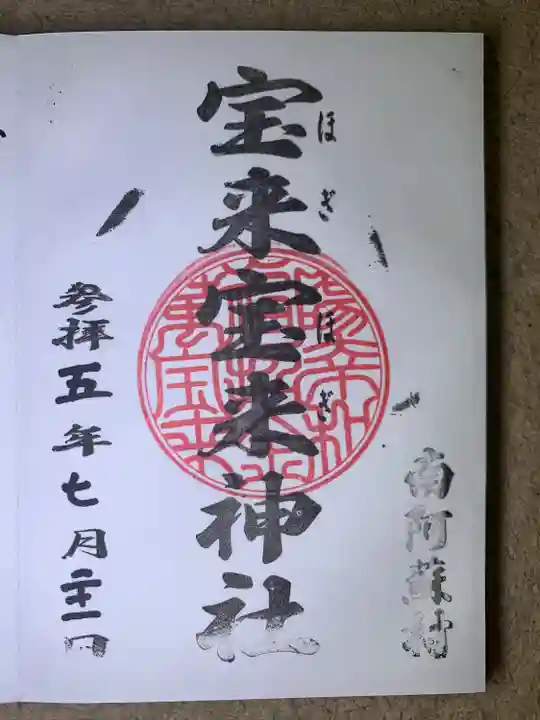 南阿蘇村
宝来宝来神社
ほぎほぎ
参拝五年七月二十一日